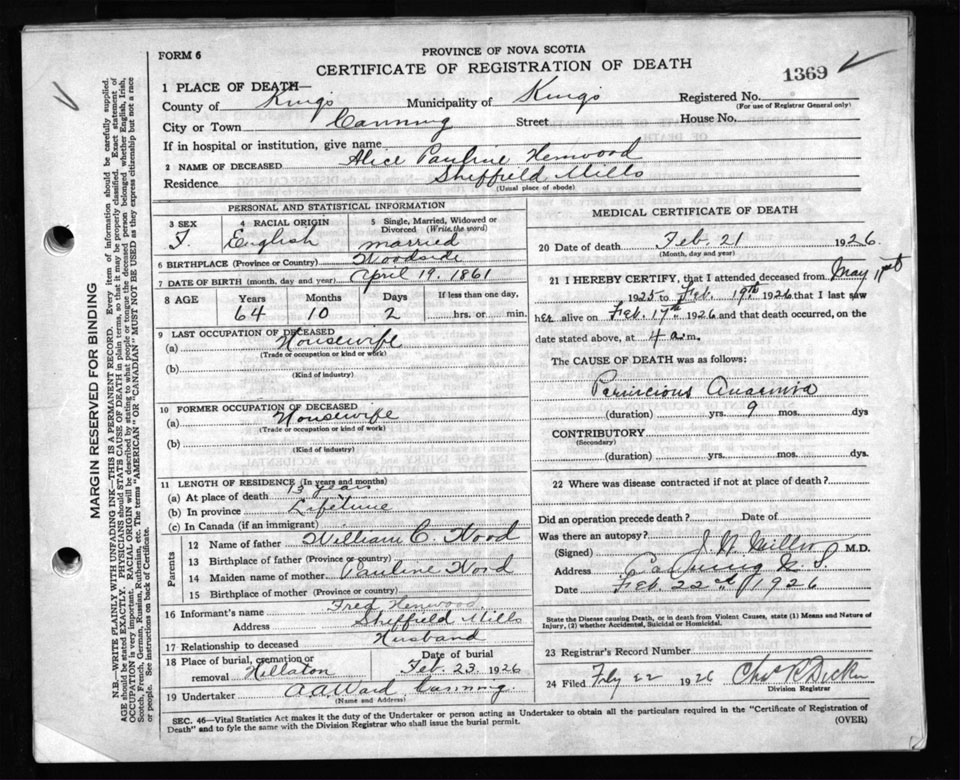 FORM 6
PROVINCE OF NOVA SCOTIA
CERTIFICATE OF REGISTRATION OF DEATH
1369
1 PLACE OF DEATH—
County of Kings Municipality of Kings Registered No.
(For use of Registrar General only)
City or Town Canning Street House No.
If in hospital or institution, give name
2 NAME OF DECEASED Alice Pauline Henwood
Residence Sheffield Mills
(Usual place of abode)
PERSONAL AND STATISTICAL INFORMATION
3 SEX 4 RACIAL ORIGIN 5 Single, Married, Widowed or Divorced (Write the word)
F. English married
6 BIRTHPLACE (Province or Country) Woodside
7 DATE OF BIRTH (month, day and year) April 19, 1861
8 AGE Years Months Days If less than one day,
64 10 2 hrs. or min.
9 LAST OCCUPATION OF DECEASED
(a) Housewife
(Trade or occupation or kind or work)
(b)
(Kind of industry)
10 FORMER OCCUPATION OF DECEASED
(a) Housewife
(Trade or occupation or kind of work)
(b)
(Kind of industry)
11 LENGTH OF RESIDENCE (In years and months)
(a) At place of death 13 years
(b) In province Lifetime
(c) In Canada (if an immigrant)
Parents
12 Name of father William C. Wood
13 Birthplace of father (Province or country)
14 Maiden name of mother Pauline Wood
15 Birthplace of mother (Province or country)
16 Informant's name Fred Henwood
Address Sheffield Mills
17 Relationship to deceased Husband
18 Place of burial, cremation or removal Hillaton Date of burial Feb. 23, 1926
19 Undertaker A A Ward Canning
(Name and Address)
MEDICAL CERTIFICATE OF DEATH
20 Date of death Feb. 21 1926.
(Month, day and year)
21 I HEREBY CERTIFY, that I attended deceased from May
1925 to Feb. 19th 1926 that I last saw
her alive on Feb. 17th 1926 and that death occurred, on the
date stated above, at 4 a.m.
The CAUSE OF DEATH was as follows:
Pernicious Anaemia
(duration) yrs. 9 mos. dys
CONTRIBUTORY
(Secondary)
(duration) yrs. mos. dys.
22 Where was disease contracted if not at place of death?
Did an operation precede death? Date of
Was there an autopsy?
(Signed) Miller M.D.
Address Canning N.S.
Date Feb. 22nd 1926
State the Disease causing Death, or in death from Violent Causes, state (1) Means and Nature of Injury, (2) whether Accidental, Suicidal or Homicidal.
23 Registrar's Record Number
24 Filed 22 1926 Chas
Division Registrar
SEC. 46—Vital Statistics Act makes it the duty of the Undertaker or person acting as Undertaker to obtain all the particulars required in the "Certificate of Registration of
Death" and to fyle the same with the Division Registrar who shall issue the burial permit. (OVER)
MARGIN RESERVED FOR BINDING
N.B.—WRITE PLAINLY WITH UNFADING INK—THIS IS A PERMANENT RECORD. Every item of information should be carefully supplied.
AGE should be stated EXACTLY. PHYSICIANS should STATE CAUSE OF DEATH in plain terms, so that it may be properly classified. Exact statement of
OCCUPATION is very important. RACIAL ORIGIN will be described by stating to what people or tongue the deceased person belonged whether English, Irish,
Scotch, French, German, Russian, Ruthenian, etc. The terms "AMERICAN" OR "CANADIAN" MUST NOT BE USED as they express citizenship but not a race
or people. See instructions on back of Certificate.